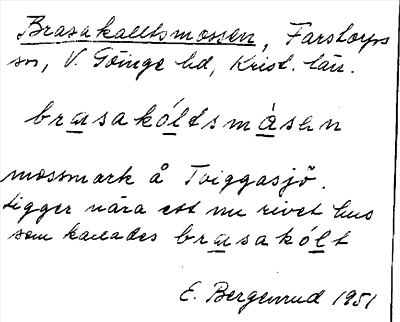 Brasakalltsmossen, Farstorps
sn, V. Göinge hd, Krist. län.
brasakóltsmåsen
mossmark å Tviggasjö.
Ligger nära ett nu rivet hus
som kallades brasakólt
E. Bergenrud 1951